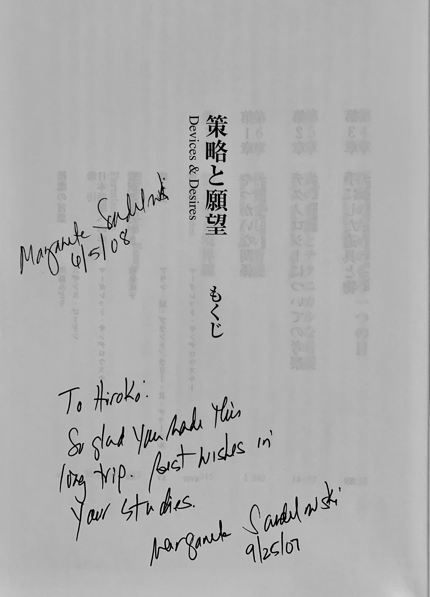 策略と願望
Devices & Desires
もくじ
Margarete Sandelowski
6/5/08
To Hiroko:
So glad you made this
long trip. Best wishes in
your studies.
Margarete Sandelowski
9/25/07